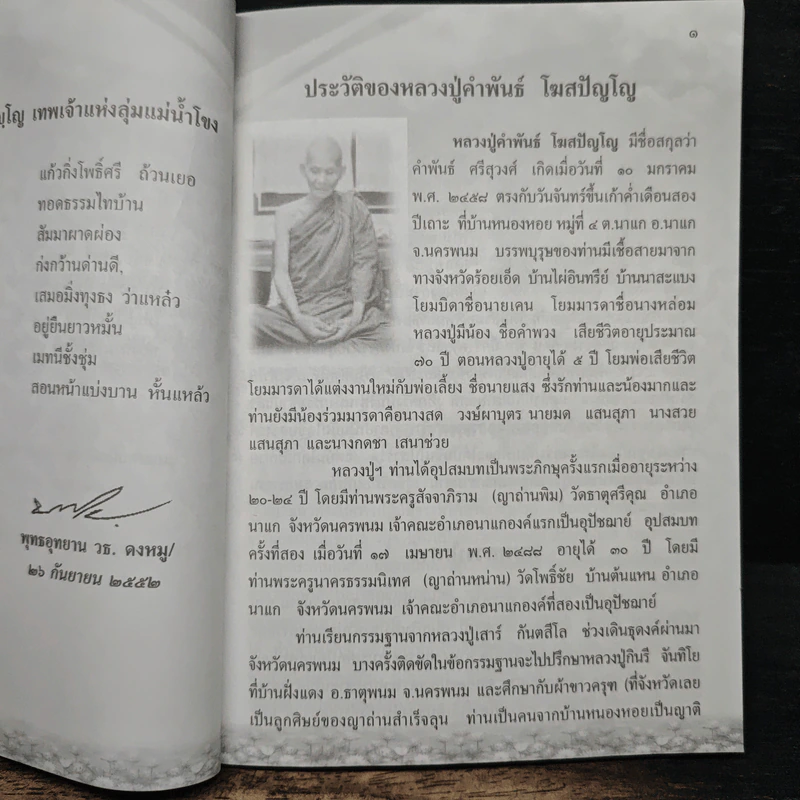 ญฺโญ เทพเจ้าแห่งลุ่มแม่น้ำโขง
แก้วกิ่งโพธิ์ศรี ถ้วนเยอ
ทอดธรรมไทบ้าน
สัมมาผาดผ่อง
ก่งกว้านด่านดี,
เสมอมิ่งทุงธง ว่าแหล๋ว
อยู่ยืนยาวหมั้น
เมทนีซั้งชุ่ม
สอนหน้าแบ่งบาน หั้นแหล้ว
พุทธอุทยาน วธ. ดงหมู/
๒๖ กันยายน ๒๕๕๒
๑
ประวัติของหลวงปู่คำพันธ์ โฆสปัญโญ
หลวงปู่คำพันธ์ โฆสปัญโญ มีชื่อสกุลว่า
คำพันธ์ ศรีสุวงศ์ เกิดเมื่อวันที่ ๑๐ มกราคม
พ.ศ. ๒๔๕๘ ตรงกับวันจันทร์ขึ้นเก้าค่ำเดือนสอง
ปีเถาะ ที่บ้านหนองหอย หมู่ที่ ๔ ต.นาแก อ.นาแก
จ.นครพนม บรรพบุรุษของท่านมีเชื้อสายมาจาก
ทางจังหวัดร้อยเอ็ด บ้านไผ่อินทรีย์ บ้านนาสะแบง
โยมบิดาชื่อนายเคน โยมมารดาชื่อนางหล่อม
หลวงปู่มีน้อง ชื่อคำพวง เสียชีวิตอายุประมาณ
๗๐ ปี ตอนหลวงปู่อายุได้ ๕ ปี โยมพ่อเสียชีวิต
โยมมารดาได้แต่งงานใหม่กับพ่อเลี้ยง ชื่อนายแสง ซึ่งรักท่านและน้องมากและ
ท่านยังมีน้องร่วมมารดาคือนางสด วงษ์ผาบุตร นายมด แสนสุภา นางสวย
แสนสุภา และนางกดชา เสนาช่วย
หลวงปู่ฯ ท่านได้อุปสมบทเป็นพระภิกษุครั้งแรกเมื่ออายุระหว่าง
๒๐-๒๔ ปี โดยมีท่านพระครูสัจจาภิราม (ญาถ่านพิม) วัดธาตุศรีคุณ อำเภอ
นาแก จังหวัดนครพนม เจ้าคณะอำเภอนาแกองค์แรกเป็นอุปัชฌาย์ อุปสมบท
ครั้งที่สอง เมื่อวันที่ ๑๗ เมษายน พ.ศ. ๒๔๘๘ อายุได้ ๓๐ ปี โดยมี
ท่านพระครูนาครธรรมนิเทศ (ญาถ่านหน่าน) วัดโพธิ์ชัย บ้านต้นแหน อำเภอ
นาแก จังหวัดนครพนม เจ้าคณะอำเภอนาแกองค์ที่สองเป็นอุปัชฌาย์
ท่านเรียนกรรมฐานจากหลวงปู่เสาร์ กันตสีโล ช่วงเดินธุดงค์ผ่านมา
จังหวัดนครพนม บางครั้งติดขัดในข้อกรรมฐานจะไปปรึกษาหลวงปู่กินรี จันทิโย
ที่บ้านฝั่งแดง อ.ธาตุพนม จ.นครพนม และศึกษากับผ้าขาวครุฑ (ที่จังหวัดเลย
เป็นลูกศิษย์ของญาถ่านสำเร็จลุน ท่านเป็นคนจากบ้านหนองหอยเป็นญาติ